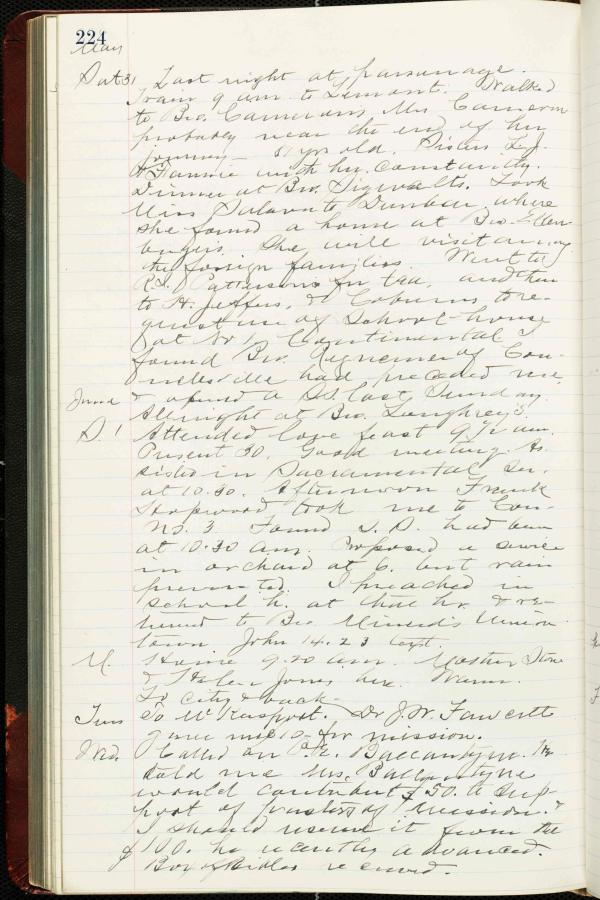 224
May
Sat 31 Last night at parsonage.
Train 9 am to Lemont. Walked
to Bro. Cameron's Mrs Cameron
probably near the end of her
journey - yrs old.
& Fannie with her constantly.
Dinner at Bro. Sigwalt's. Took
Miss to Dunbar where
she found a home at Bro. Ellen
bergers. She will visit among
the foreign families. Went to
R. D. Patterson's for tea, and then
to H. Jeffers, & Coburns to re-
quest use of School-house
at No 1, Continental. I
found Bro. of Con-
nellsville had preceded me
June & opened a SS. last Sunday.
All night at Bro. Lunghrey's.
S. 1 Attended love feast 9 1/2 am.
Present 30. Good meeting. As
sisted in Sacramental Ser.
at 10.30. Afternoon Frank
Hopwood took me to Con-
No. 3 Found S. S. had been
at 10.30 am. Proposed a service
in orchard at 6. but rain
prevented. I preached in
school h. at that hr. & re-
turned to Bro Union-
town. John 14.23 text.
M. Home 9.20 am. Master
& Helen Jones here. Warm.
To city & back
Tues To McKeesport. Dr J. W. Fawcett
gave me 10- for mission.
Wed. Called on P. E. Ballantyne. He
told me Mrs. Ballantyne
would contribute $50. to sup-
port of pastor of mission. &
I should receive it from the
$100. he recently advanced.
Box of Bibles received.